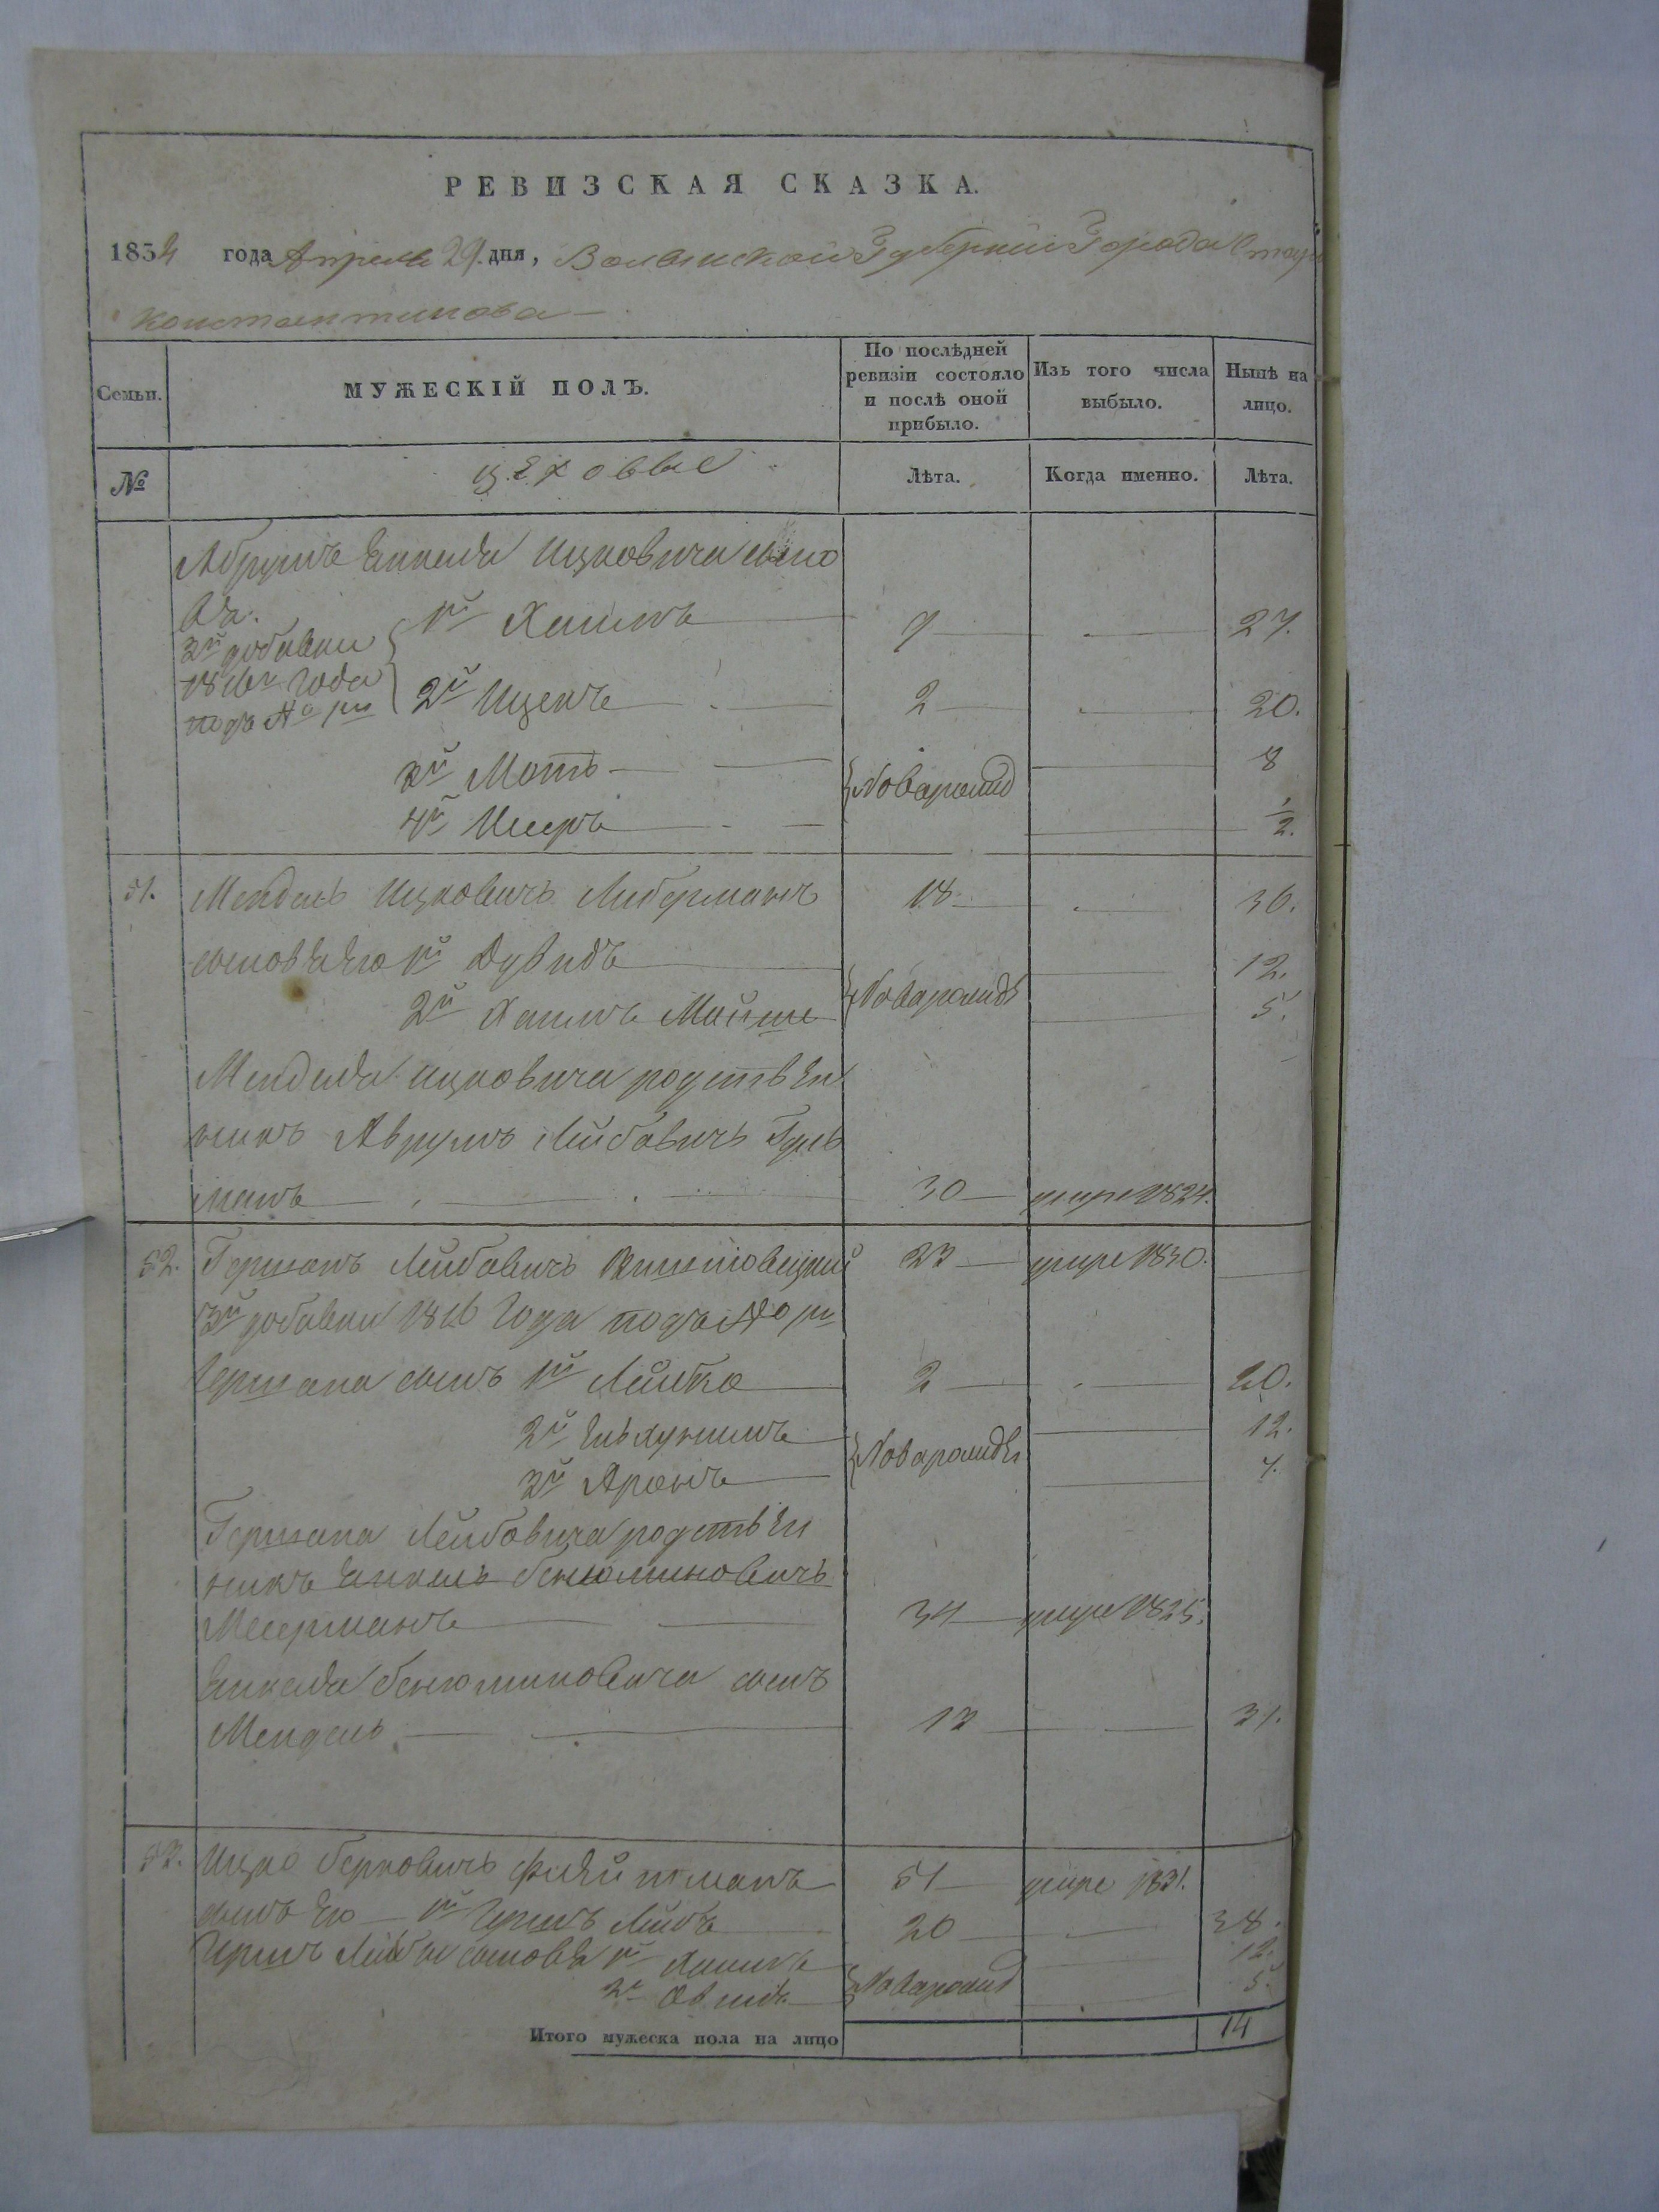 РЕВИЗСКАЯ СКАЗКА.
1834 года Апреля 29. дня, Волынской Губернии Города Старо
константинова —
Семьи.
МУЖЕСКІЙ ПОЛЪ.
По послѣдней ревизіи состояло и послѣ оной прибыло.
Изъ того числа выбыло.
Нынѣ на лицо.
№
цеховые
Лѣта.
Когда именно.
Лѣта.
Абрумъ Янкеля Ицковича сыно
вя.
1й Хаимъ — 9 — 27.
3й добавки
1816го Года
подъ №
2й Ицекъ — 2 — 20.
3й Мотъ — 8
Новарожд
4й — 1/2.
51. Мендель Ицковичъ Либерманъ 18 — 36.
сыновья Его 1й Дувидъ — 12.
Новарожде
2й Хаимъ Мойше — 5.
Менделя Ицковича родствен
никъ Аврумъ Лейбовичъ
манъ — 30 — умре 1824.
52. Гершонъ Лейбовичъ Вишновецкий 23 — умре 1830.
3й добавки 1816 Года подъ №
Гершона сынъ 1й Лейбко — 2 — 20.
2й — 12.
Новарожден
3й Аронъ — 7.
Гершона Лейбовича родствен
никъ Янкель Бенюминовичъ
Месерманъ — 34 — умре 1825.
Янкеля Бенюминовича сынъ
Мендель — 13 — 31.
53. Ицко Берковичъ 51 — умре 1831.
сынъ Его — 1й Гершъ Лейбъ 20 — 38.
Гершъ Лейбы сыновья 1й Хаимъ 12.
Новарожд
2й 5.
Итого мужеска пола на лицо
14